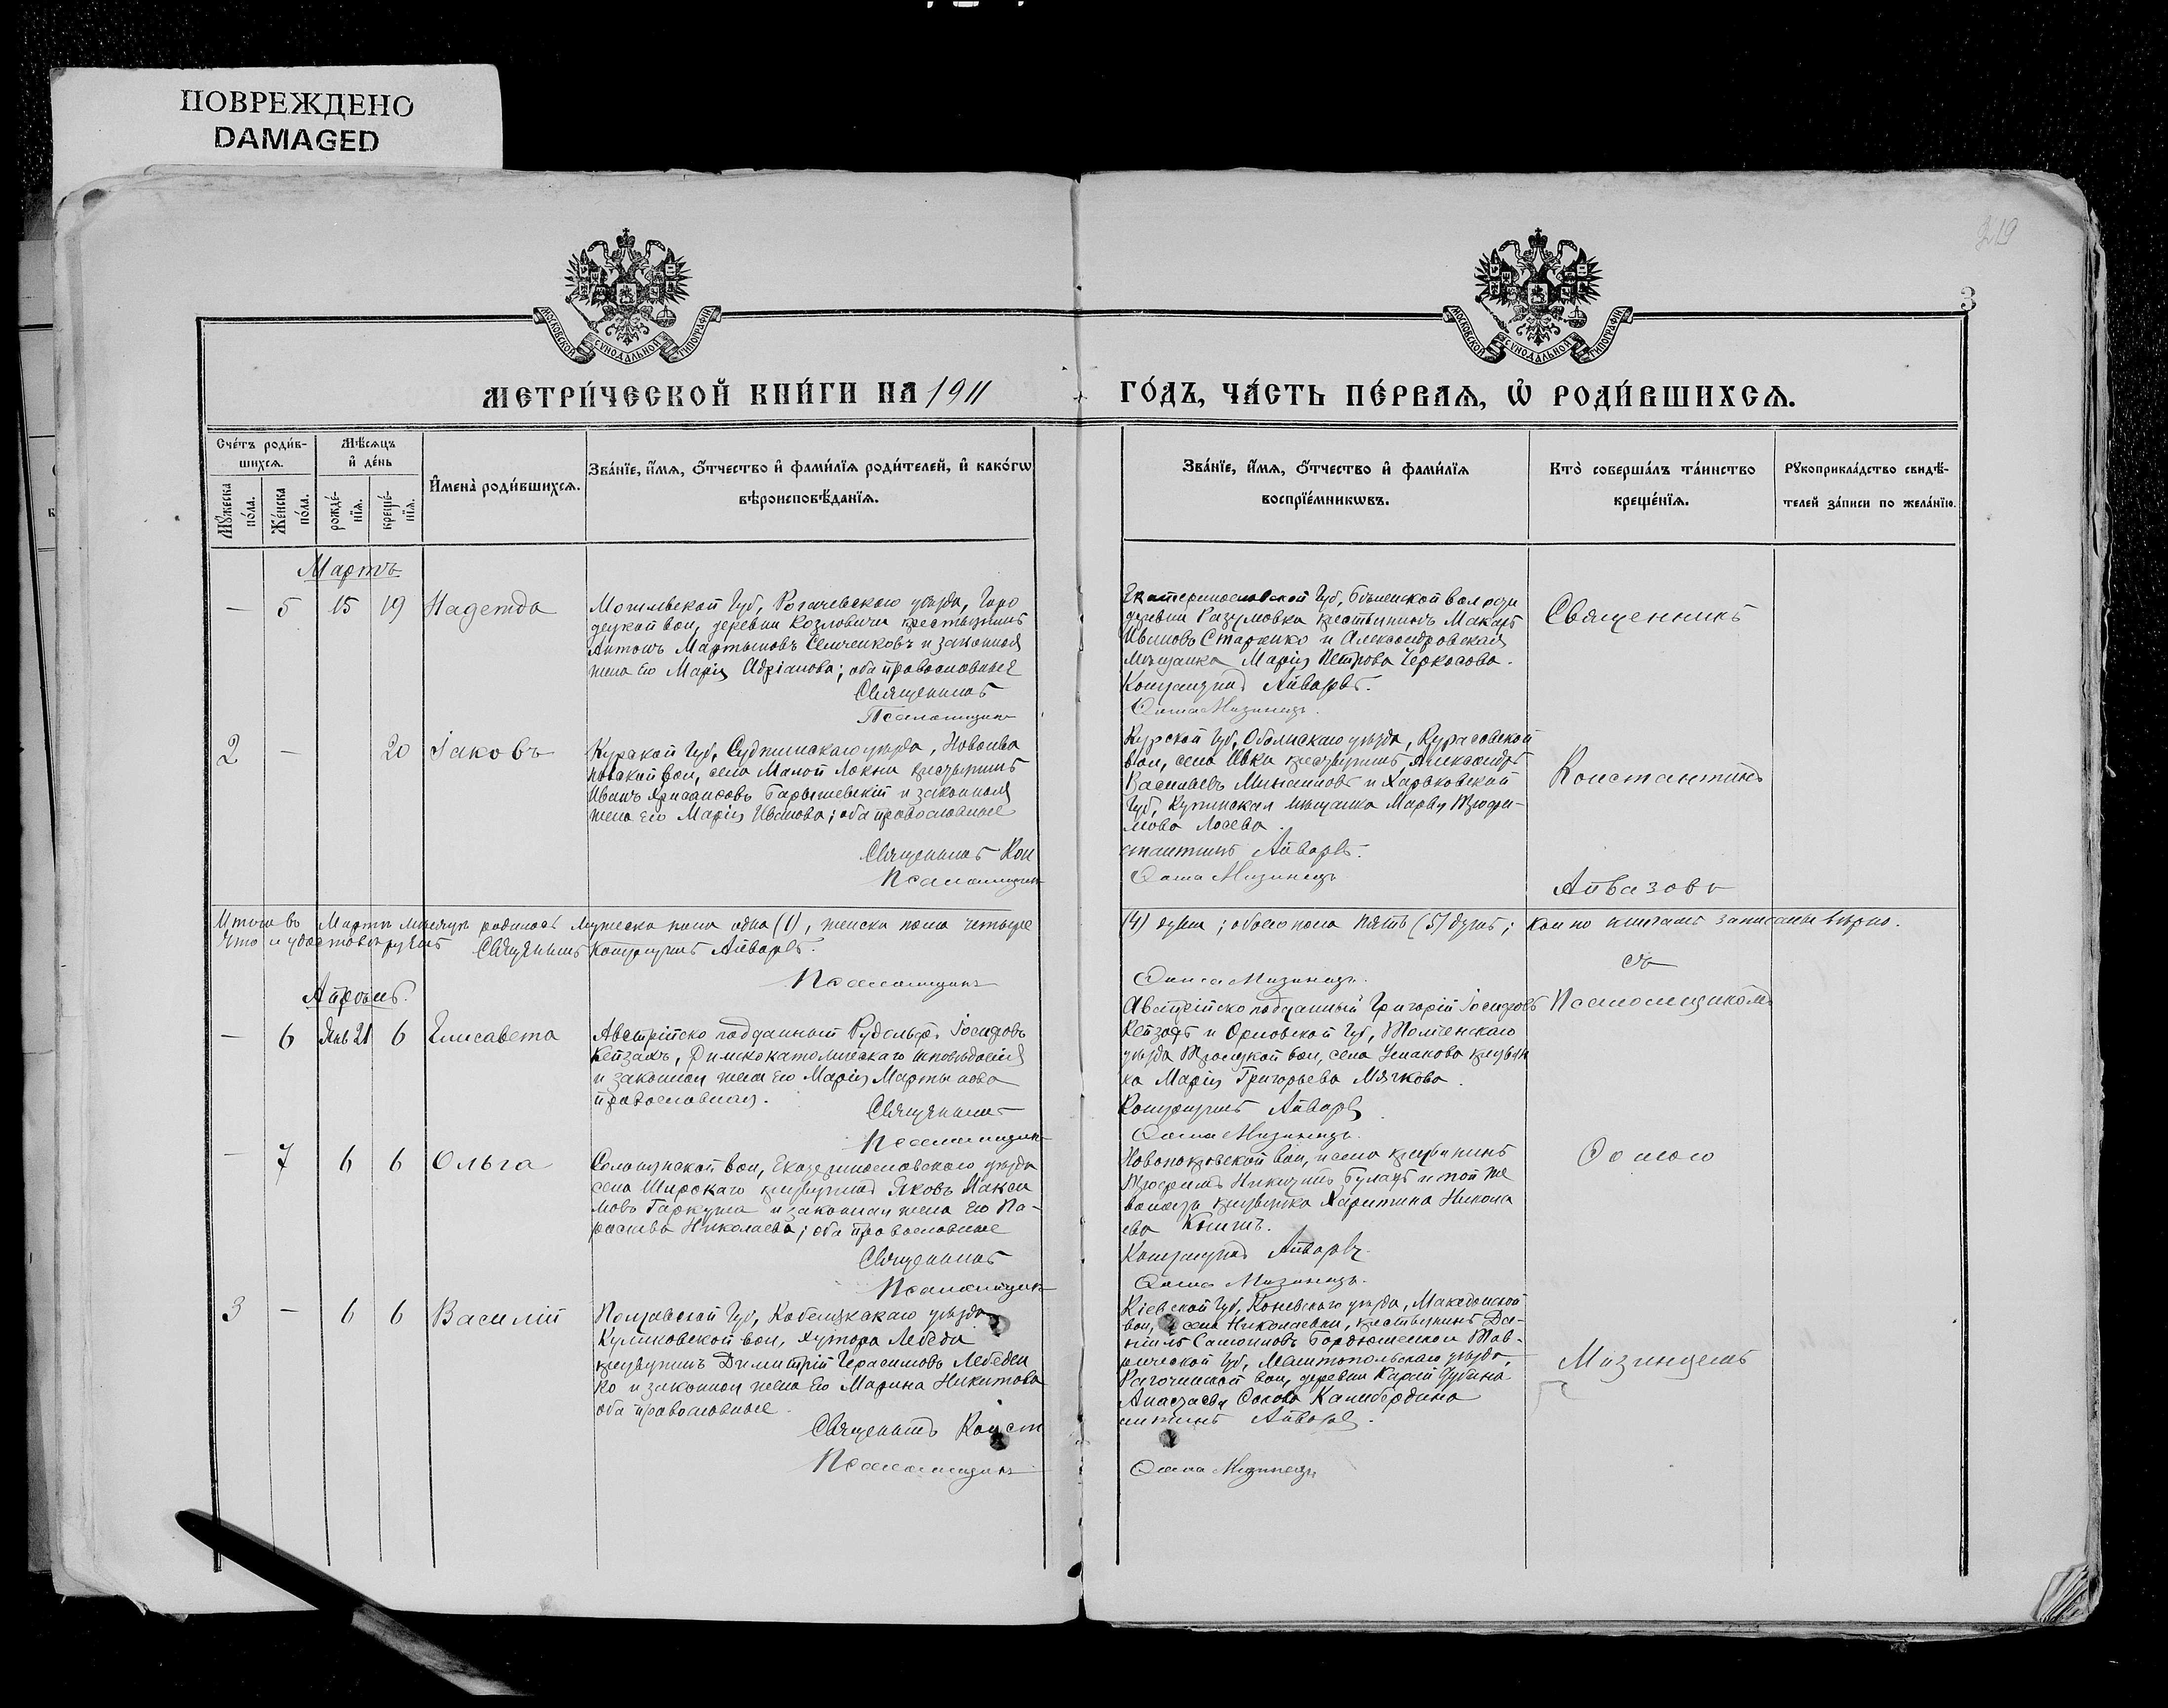 ПОВРЕЖДЕНО
DAMAGED
219
3
МОСКОВСКОЙ СѴНОДАЛЬНОЙ ТИПОГРАФІИ
МОСКОВСКОЙ СѴНОДАЛЬНОЙ ТИПОГРАФІИ
МЕТРИ́ЧЕСКОЙ КНИ́ГИ НА 1911
ГО́ДЪ, ЧА́СТЬ ПЕ́РВАѦ, Ѡ РОДИ́ВШИХСѦ.
Сче́тъ роди́в-
шихсѧ.
Мѣ́сѧцъ
и҆ де́нь
Мꙋ́жеска
по́ла.
Же́нска
по́ла.
рожде́-
нїѧ.
креще́-
нїѧ.
И҆мена̀ роди́вшихсѧ.
Зва́нїе, и҆́мѧ, ѻ҆́тчество и҆ фами́лїѧ роди́телей, и҆ како́гѡ
вѣроисповѣ́данїѧ.
Зва́нїе, и҆́мѧ, ѻ҆́тчество и҆ фами́лїѧ
воспрїе́мникѡвъ.
Кто̀ соверша́лъ та́инство
креще́нїѧ.
Рꙋкоприкла́дство свидѣ́-
телей за́писи по жела́нїю.
Мартъ
— 5 15 19 Надежда
Могилевской Губ, Рогачевскаго уѣзда, Горо
децкой вол, деревни Козловичи крестьянинъ
Антонъ Мартыновъ Семченковъ и законная
жена его Марія Адріанова; оба православные
Священникъ
Псаломщикъ
Екатеринославской Губ, Бѣленской волости
деревни Разумовка крестьянинъ Макаръ
Ивановъ Старченко и Александровская
мѣщанка Марія Петрова Черкасова.
Константинъ Айвазовъ.
Ѳома Мизинецъ.
Священникъ
2 — 20 Іаковъ
Курской Губ, Суджинскаго уѣзда, Новоива
новской вол, села Малой Локни крестьянинъ
Иванъ Хрисанфовъ Барышевскій и законная
жена его Марія Иванова; оба православные
Священникъ Кон
Псаломщикъ
Курской Губ, Обоянскаго уѣзда, Курасовской
вол, села Ивки крестьянинъ Александръ
Васильевъ и Харьковской
Губ, Купянская мѣщанка Марѳа Трофи-
мова Лосева.
стантинъ Айвазовъ.
Ѳома Мизинецъ
Константинъ
Айвазовъ
Итого въ Мартѣ мѣсяцѣ родилось мужеска пола одна (1), женска пола четыре
(4) души; обоего пола пять (5) душъ; кои по книгамъ записаны вѣрно.
Что и удостовѣряемъ Священникъ Константинъ Айвазовъ.
Псаломщикъ
Ѳома Мизинецъ.
съ
Апрѣль.
— 6 Янв 21 6 Елисавета
Австрійско подданный Рудольфъ Іосифовъ
Кейзаръ, Римскокатолическаго исповѣданія
и законная жена его Марія Мартынова
православная.
Священникъ
Псаломщикъ
Австрійско подданный Григорій Іосифовъ
Кейзаръ и Орловской Губ, Мценскаго
уѣзда Троицкой вол, села крестьян
ка Марія Григорьева Мячкова.
Константинъ Айвазовъ
Ѳома Мизинецъ.
Псаломщикомъ
— 7 6 6 Ольга
вол, Екатеринославскаго уѣзда
села Широкаго крестьянинъ Яковъ Макси
мовъ Гаркуша и законная жена его Па-
раскева Николаева; оба православные
Священникъ
Псаломщикъ
Новопокровской вол, и села крестьянинъ
Трофимъ Никитинъ Булахъ и той же
волости крестьянка Харитина Никола
ева Книшъ.
Константинъ Айвазовъ.
Ѳома Мизинецъ.
Ѳомою
3 — 6 6 Василій
Полтавской Губ, Кобелякскаго уѣзда
Куликовской вол, хутора Лебеди
крестьянинъ Димитрій Герасимовъ Лебеден
ко и законная жена его Марина Никитова
оба православные.
Священникъ Конст
Псаломщикъ
Кіевской Губ, Каневскаго уѣзда, Македонской
вол, и села Николаевки, крестьянинъ Да-
ніилъ Самоиловъ и Тав-
рической Губ, Мелитопольскаго уѣзда,
вол, деревни
Анастасія Калибердина
антинъ Айвазовъ.
Ѳома Мизинецъ
Мизинцемъ